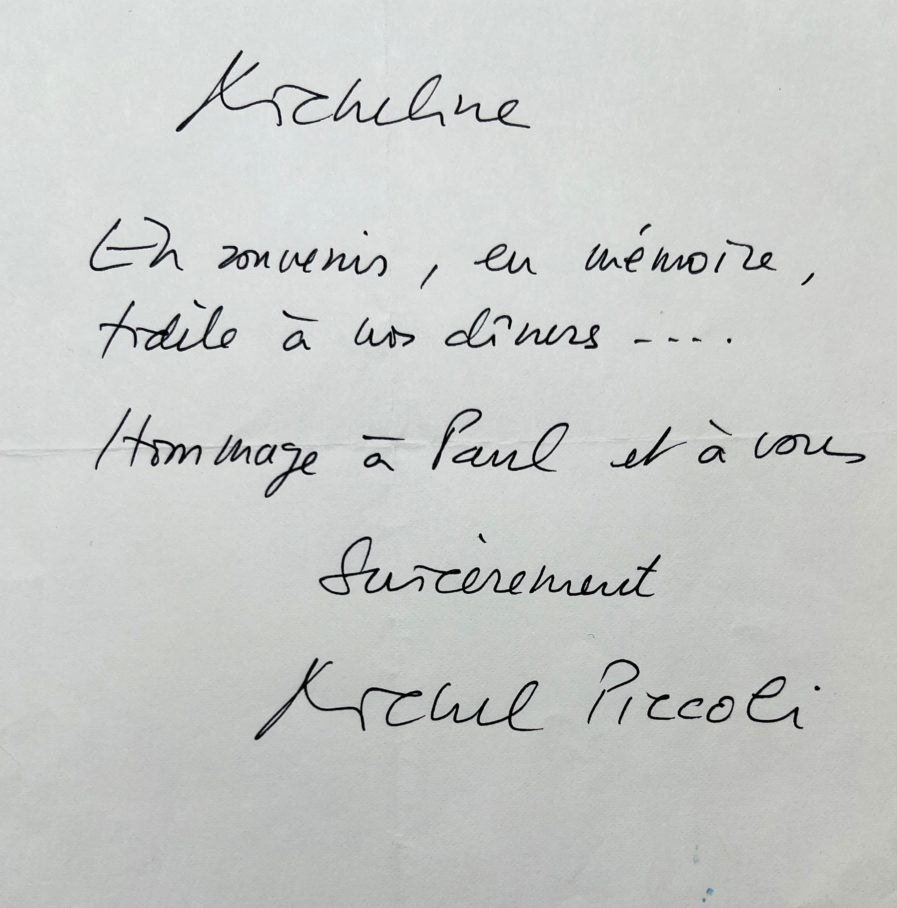 Micheline
En souvenir, en mémoire,
fidèle à nos dîners ....
Hommage à Paul et à vous
Sincèrement
Michel Piccoli